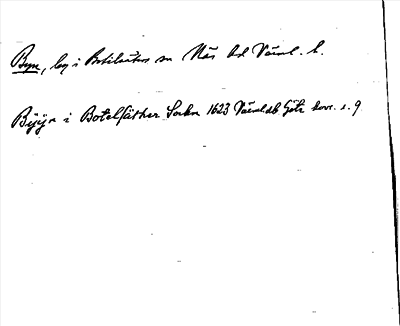 Byn, by i Botilsäters sn Näs hd Värml. l.
Bÿÿn i Botelsäther Sockn 1623 Värml.db Göta kovr. s. 9